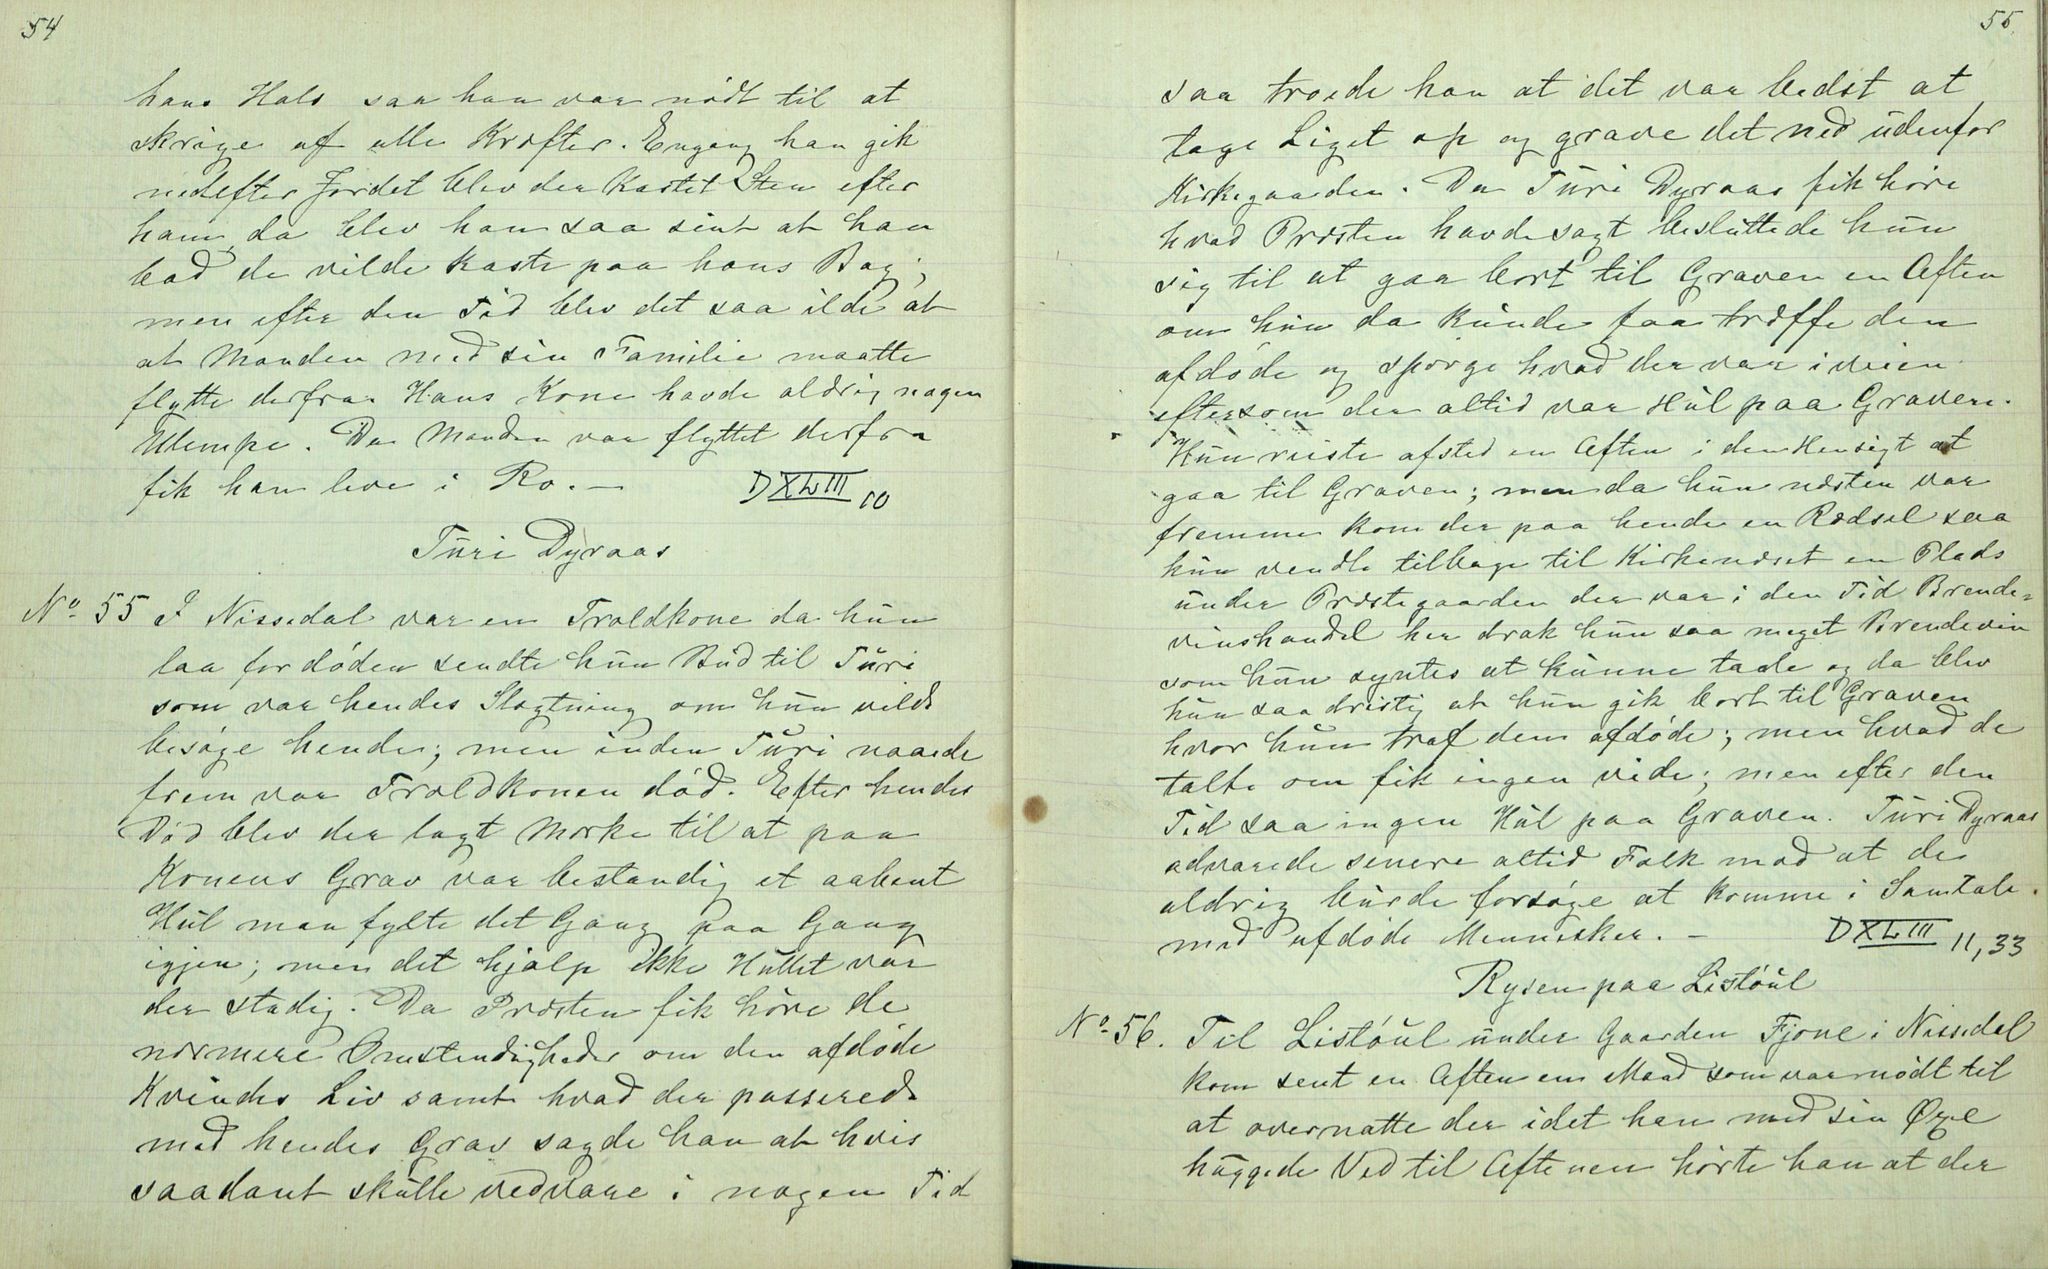 54
hans Hals saa han var nødt til at
skrige af alle Kræfter. Engang han gik
nedefter Jordet blev der Kastet Sten efter
ham, da blev han saa sint at han
bad de vilde kaste paa hans Bag;
men efter den Tid blev det saa ilde at
at Manden med sin Familie maatte
flytte derfra. Hans Kone havde aldrig nogen
Ulempe. Da Manden var flyttet derfra
fik han leve i Ro. —
D XLIII 10
Turi Dyraas
No 55 I Nissedal var en Troldkone da hun
laa for døden sendte hun Bud til Turi
som var hendes Slegtning om hun vilde
besøge hende; men inden Turi naaede
frem var Troldkonen død. Efter hendes
Død blev der lagt Mærke til at paa
Konens Grav var bestandig et aabent
Hul man fylte det Gang paa Gang
igjen; men det hjalp ikke Hullet var
der stadig. Da Præsten fik høre de
nærmere Omstendigheder om den afdøde
Kvindes Liv samt hvad der passerede
med hendes Grav sagde han at hvis
saadant skulle vedvare i nogen Tid
55.
saa troede han at det var bedst at
tage Liget op og grave det ned udenfor
Kirkegaarden. Da Turi Dyraas fik høre
hvad Præsten havde sagt besluttede hun
sig til at gaa bort til Graven en Aften
om hun da kunde faa træffe den
afdøde og spørge hvad der var i veien
eftersom der altid var Hul paa Graven.
Hun reiste afsted en Aften i den Hensigt at
gaa til Graven; men da hun næsten var
fremme kom der paa hende en Rædsel saa
hun vendte tilbage til Kirkenæset en Plads
under Præstegaarden der var i den Tid Brende=
vinshandel her drak hun saa meget Brendevin
som hun syntes at kunne taale og da blev
hun saa dristig at hun gik bort til Graven
hvor hun traf den afdøde; men hvad de
talte om fik ingen vide; men efter den
Tid saa ingen Hul paa Graven. Turi Dyraas
advarede senere altid Folk mod at de
aldrig burde forsøge at komme i Samtale
med afdøde Mennesker. —
D XLIII 11, 33
Rysen paa Listöul
No 56. Til Listöul under Gaarden Fjone i Nissedal
kom sent en Aften en Mand som var nødt til
at overnatte der idet han med sin Øxe
huggede Ved til Aftenen hørte han at der